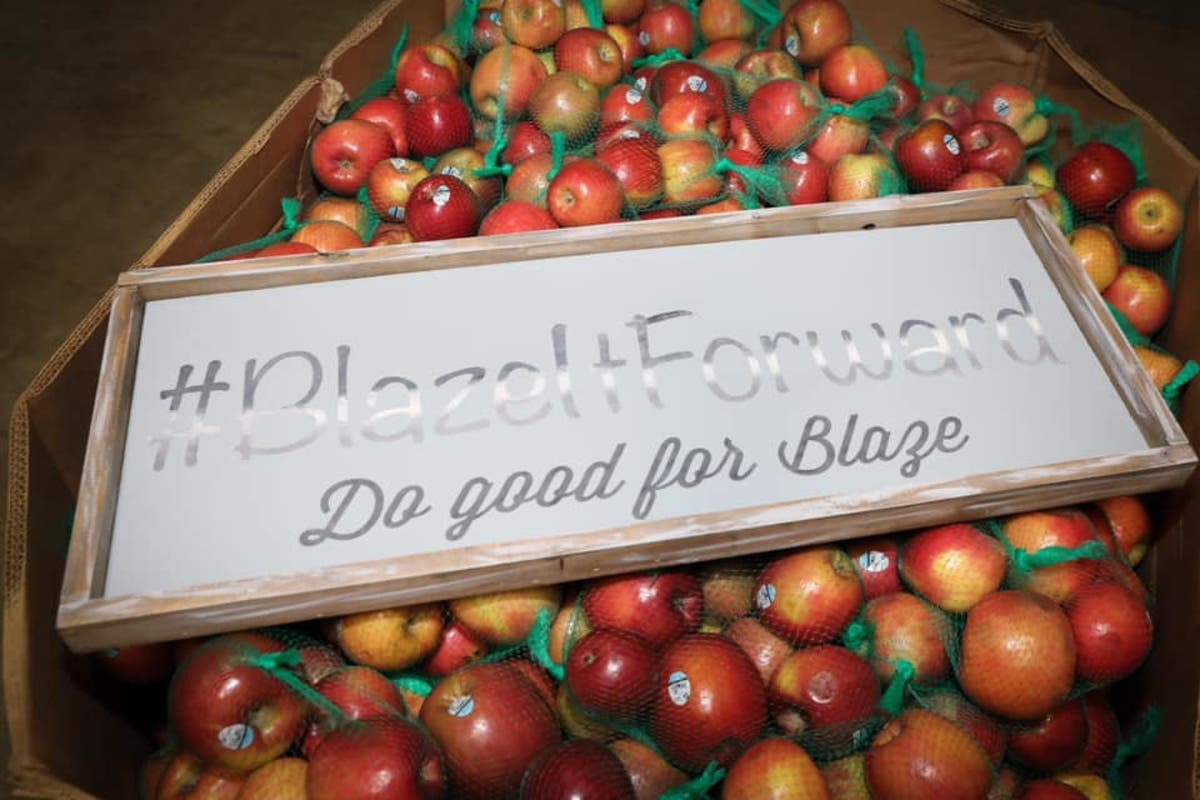 #BlazeItForward
Do good for Blaze